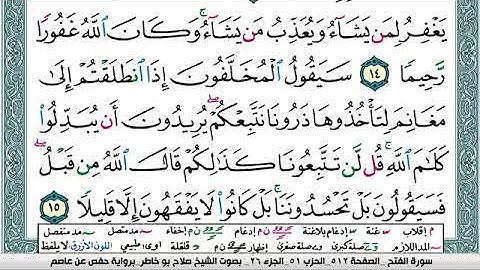 يَغْفِرُ لِمَن يَشَآءُ وَيُعَذِّبُ مَن يَشَآءُ ۚ وَكَانَ ٱللَّهُ غَفُورًا
رَّحِيمًا ١٤ سَيَقُولُ ٱلْمُخَلَّفُونَ إِذَا ٱنطَلَقْتُمْ إِلَىٰ
مَغَانِمَ لِتَأْخُذُوهَا ذَرُونَا نَتَّبِعْكُمْ ۖ يُرِيدُونَ أَن يُبَدِّلُوا۟
كَلَٰمَ ٱللَّهِ ۚ قُل لَّن تَتَّبِعُونَا كَذَٰلِكُمْ قَالَ ٱللَّهُ مِن قَبْلُ ۖ
فَسَيَقُولُونَ بَلْ تَحْسُدُونَنَا ۚ بَلْ كَانُوا۟ لَا يَفْقَهُونَ إِلَّا قَلِيلًا ١٥
م إقلاب غنة إدغام بلاغنة ن م إدغام ن م إخفاء مد متصل مد منفصل
المد اللازم صلة كبرى صلة صغرى إظهار ن م قلقلة مد طبيعي اللون الأزرق لا يلفظ
سورة الفتح _ الصفحة ٥١٢ _ الحزب ٥١ _ الجزء ٢٦ _ بصوت الشيخ صلاح بو خاطر _ برواية حفص عن عاصم